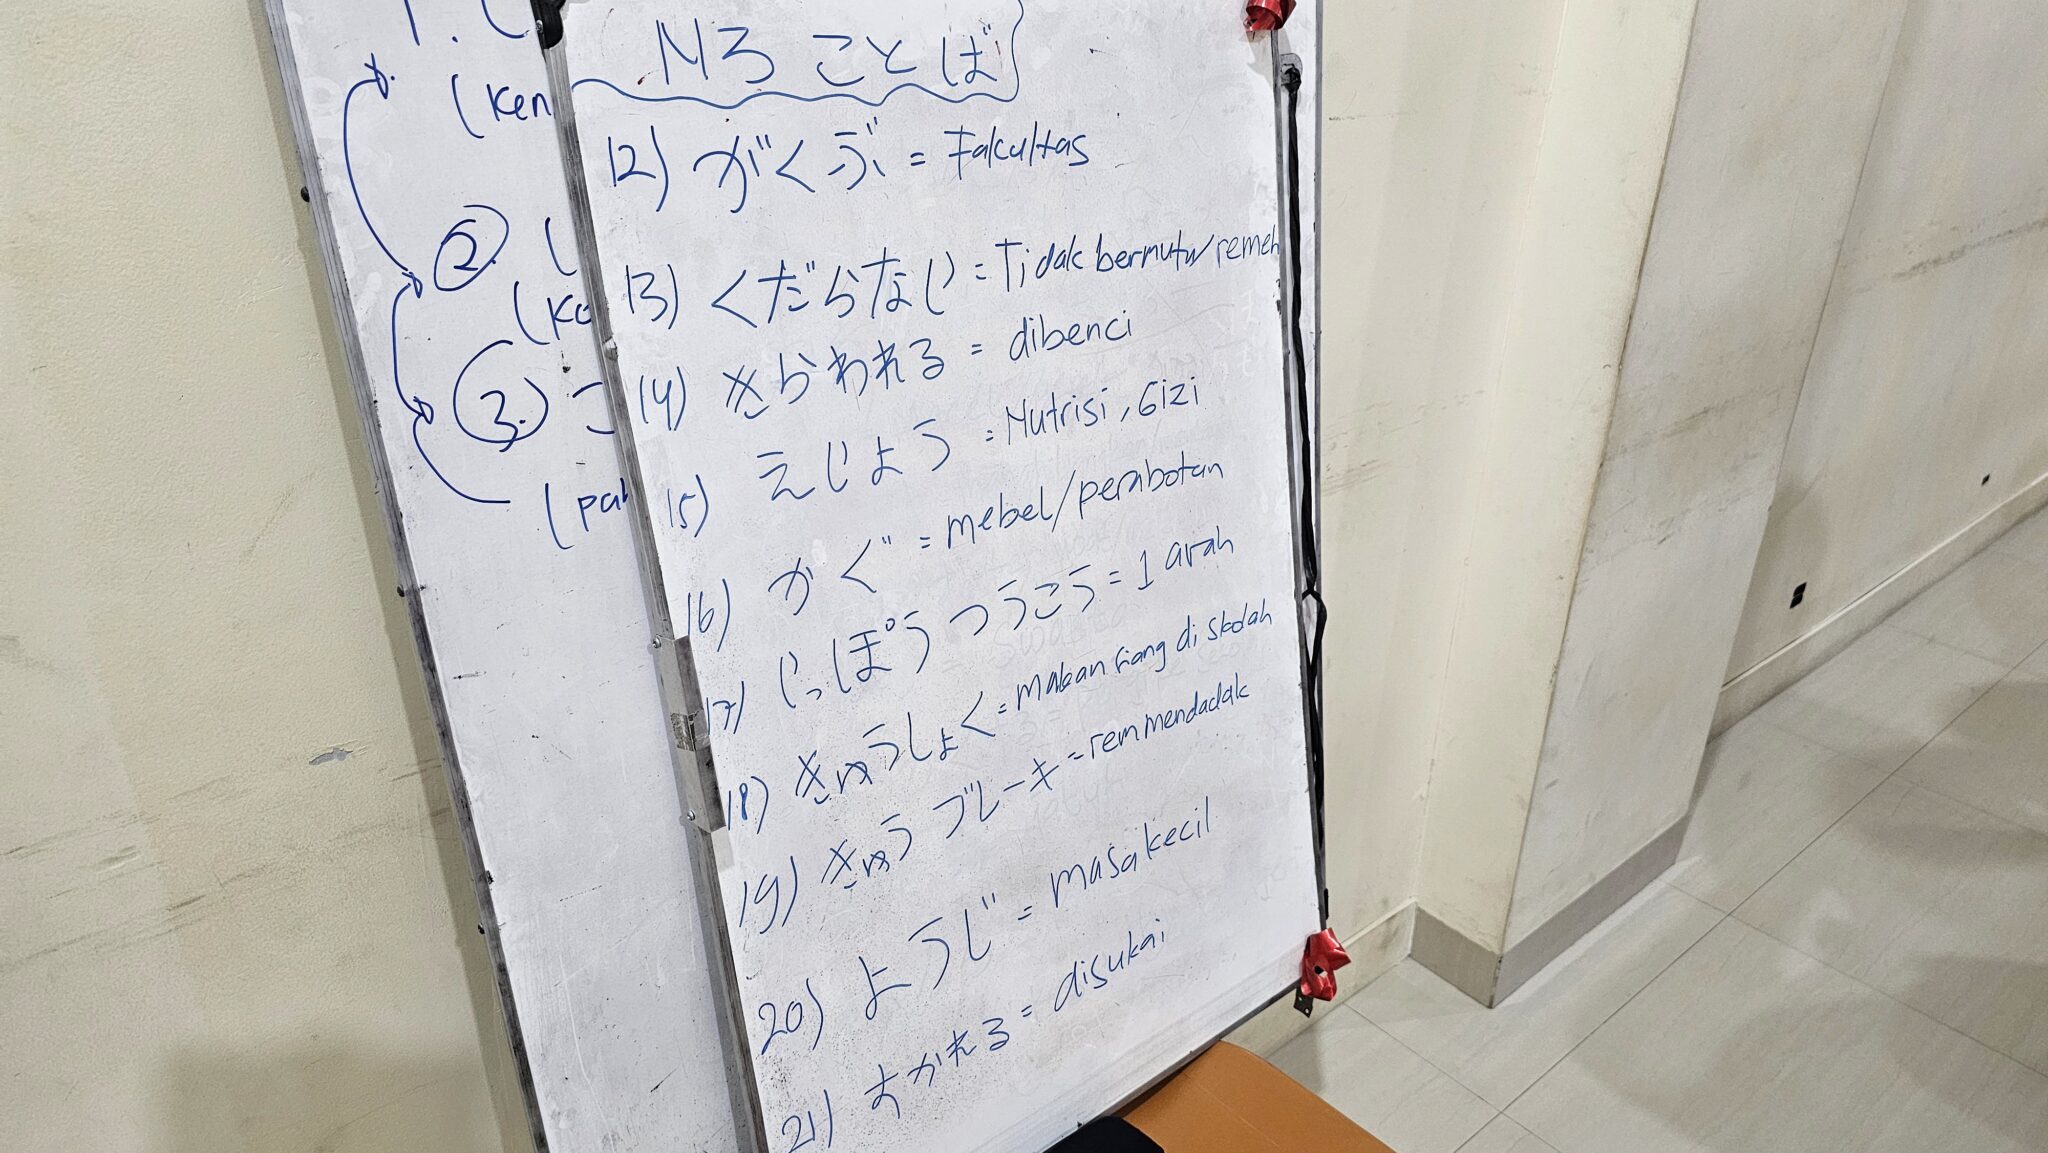 N3 ことば
12) がくぶ = Fakultas
13) くだらなし = Tidak bermutu/remeh
14) きらわれる = dibenci
15) えじよう = Nutrisi, Gizi
16) かぐ = mebel/perabotan
17) じっぽうつうこう = 1 arah
18) きゅうしょく = makan siang di sekolah
19) きゅうブレーキ = rem mendadak
20) ようじ = masa kecil
21) すかれる = disukai
1. (
(ken
2. (
(Ko
3. こ
(pa